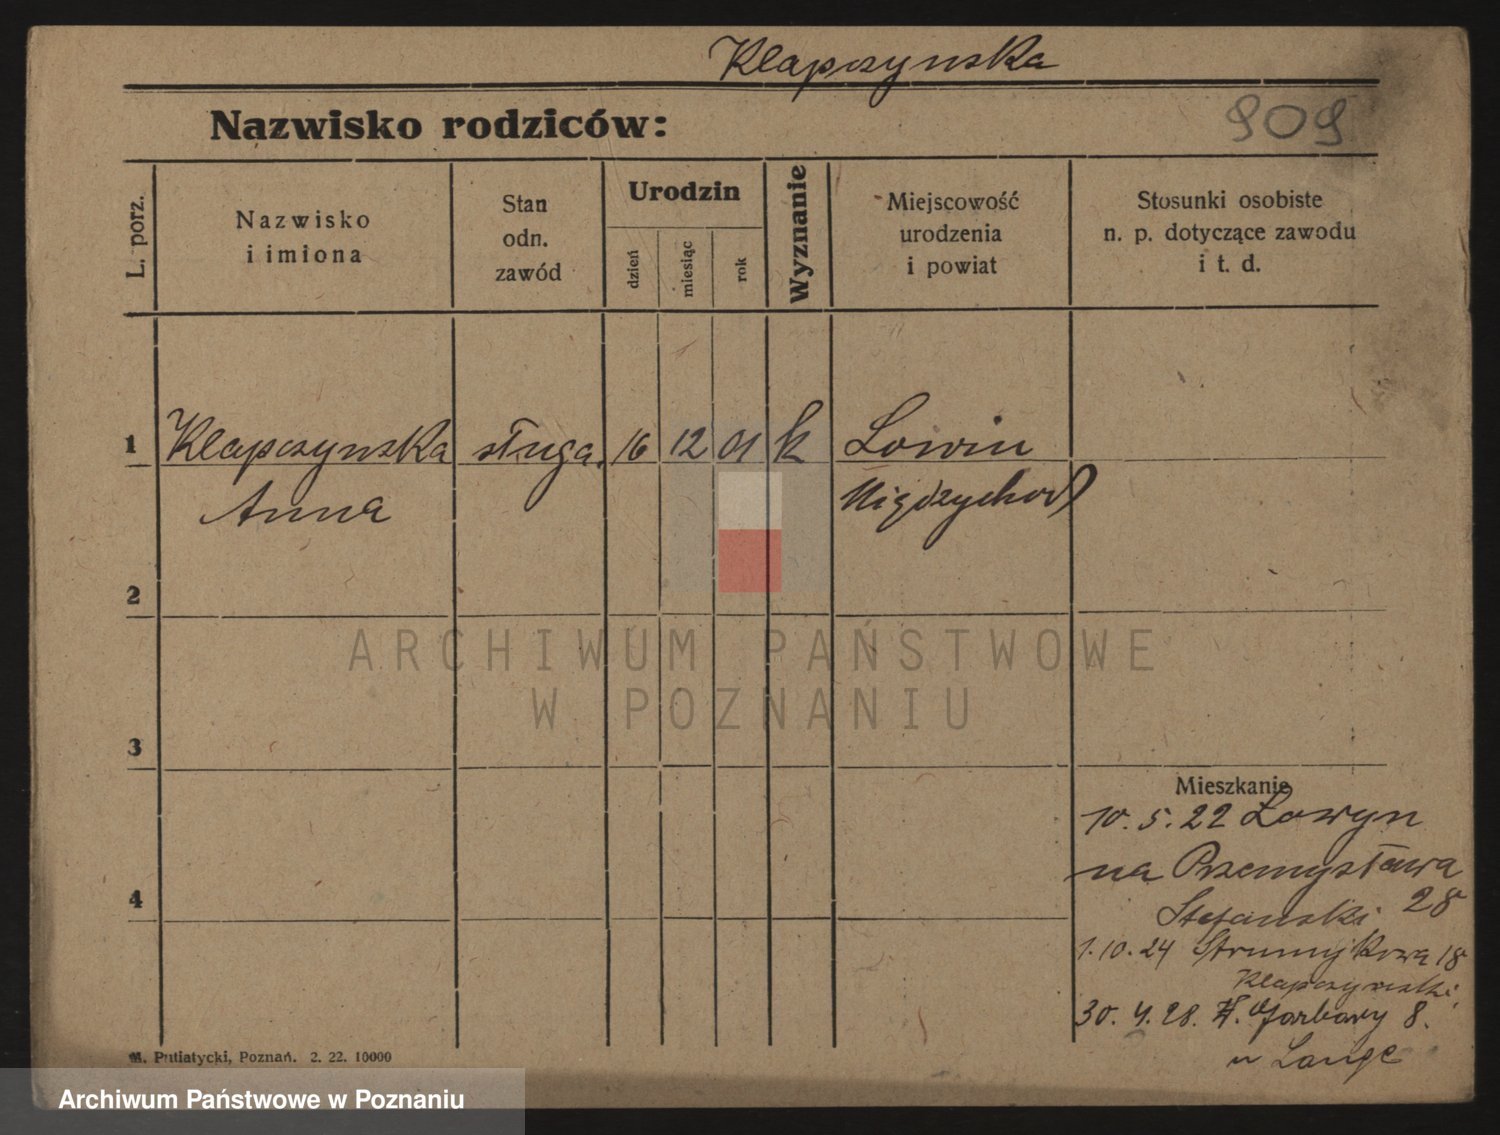 Klapczynska
Nazwisko rodziców:
909
L. porz.
Nazwisko
i imiona
Stan
odn.
zawód
Urodzin
dzień
miesiąc
rok
Wyznanie
Miejscowość
urodzenia
i powiat
Stosunki osobiste
n. p. dotyczące zawodu
i t. d.
1 Klapczynska sługa. 16 12 01 k Lowin
Anna Międzychod
2
ARCHIWUM PAŃSTWOWE
W POZNANIU
3
Mieszkanie
10.5.22 Lowyn
na Przemysława
4
Stefanski 28
1.10.24 Strumykowa 18
Klapczynski
30.4.28. Garbary 8.
u Lange
M. Putiatycki, Poznań. 2. 22. 10000
Archiwum Państwowe w Poznaniu